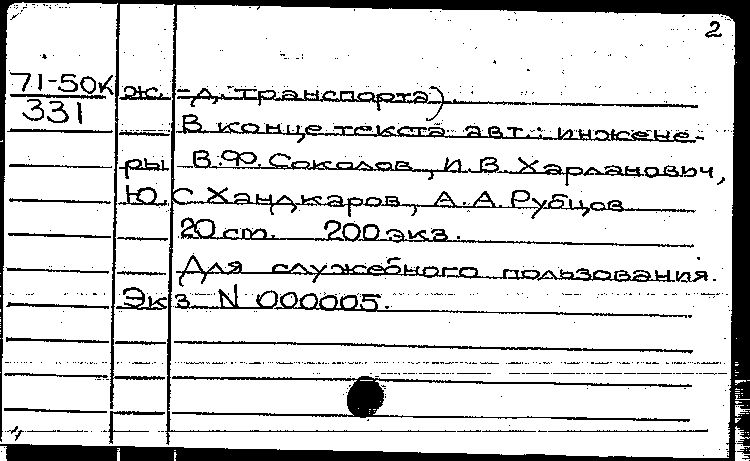 2
71-50К ж.-д. транспорта).
331
В конце текста авт.: инжене-
ры В.Ф. Соколов, И.В. Харланович,
Ю.С Ханджаров, А.А. Рубцов
20 cm. 200 экз.
Для служебного пользования.
Экз. N 000005.